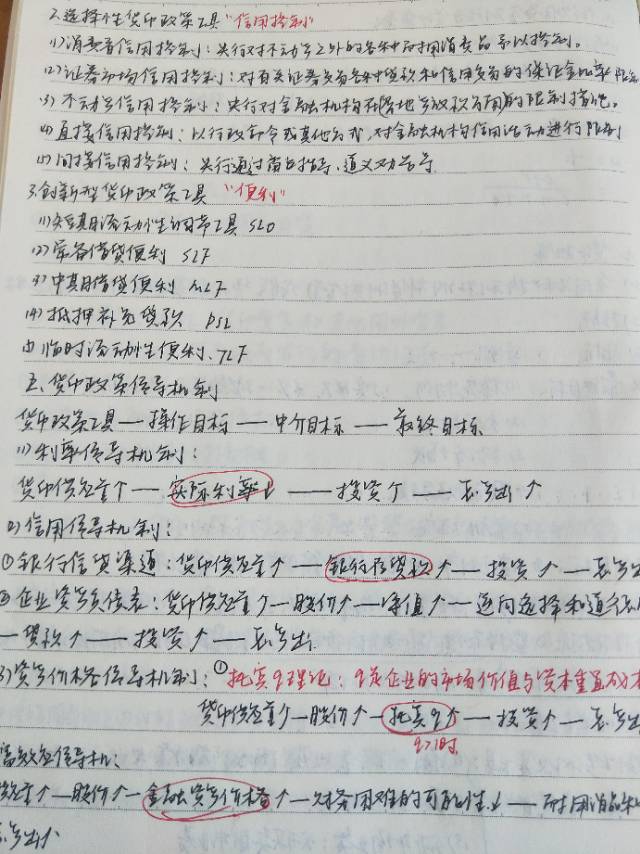 2.选择性货币政策工具"信用控制"
(1)消费者信用控制:央行对不动产之外的各种耐用消费品予以控制。
(2)证券市场信用控制:对有关证券交易各种贷款和信用交易的保证金比率
(3)不动产信用控制:央行对金融机构在房地产放款方面的限制措施。
(4)直接信用控制:以行政命令或其他方式,对金融机构信用活动进行限制
(5)间接信用控制:央行通过窗口指导、道义劝告等
3.创新型货币政策工具 "便利"
(1)短期流动性调节工具 SLO
(2)常备借贷便利 SLF
(3)中期借贷便利 MLF
(4)抵押补充贷款 PSL
(5)临时流动性便利、TLF
五、货币政策传导机制
货币政策工具—操作目标—中介目标—最终目标
(1)利率传导机制:
货币供应量↑—实际利率↓—投资↑—总产出↑
(2)信用传导机制:
①银行信贷渠道:货币供应量↑—银行存贷款↑—投资↑—总产出
②企业资产负债表:货币供应量↑—股价↑—净值↑—逆向选择和道德
—贷款↑—投资↑—总产出
3)资产价格传导机制:①托宾q理论:q是企业的市场价值与资本重置成本
货币供应量↑—股价↑—托宾q↑—投资↑—总产出
q>1时
富效应传导机:
应量↑—股价↑—金融资产价格↑—财务困难的可能性↓—耐用消品和
总产出↑